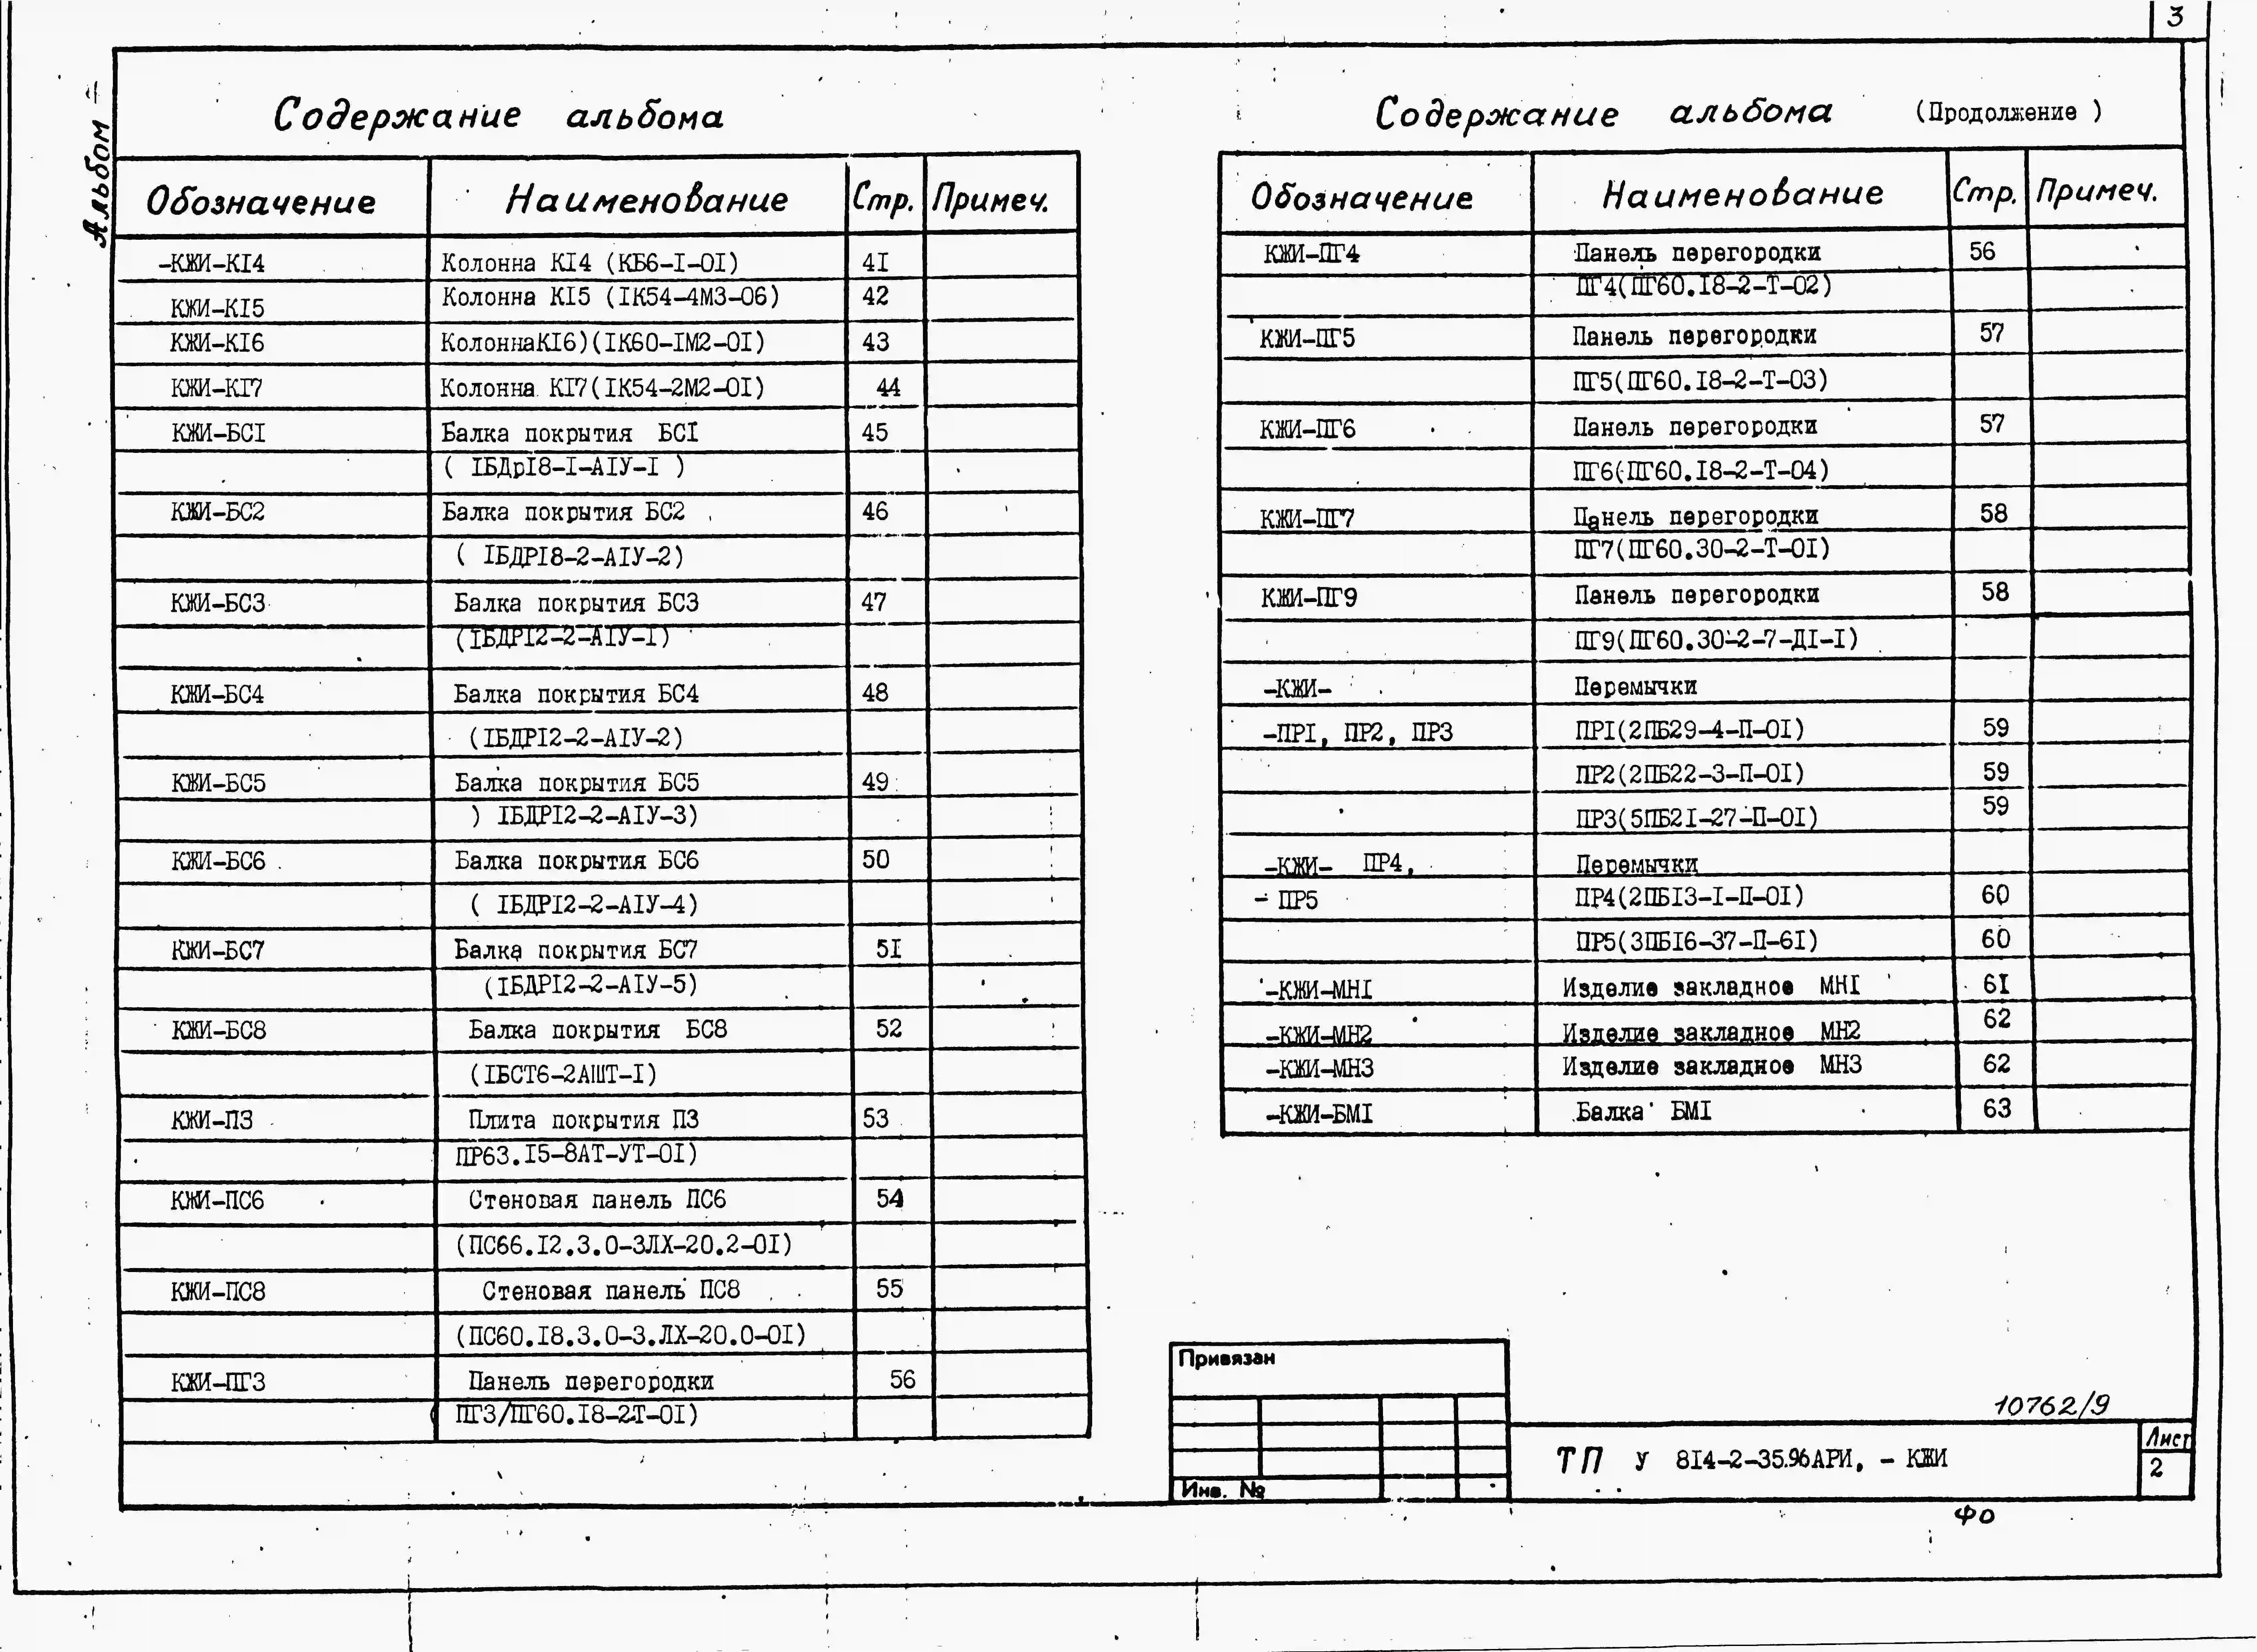 3
Альбом 4
Содержание альбома
Обозначение Наименование Стр. Примеч.
-КЖИ-КI4 Колонна КI4 (КБ6-I-OI) 4I
КЖИ-КI5 Колонна КI5 (IК54-4М3-06) 42
КЖИ-КI6 КолоннаКI6)(IК60-IМ2-OI) 43
КЖИ-КI7 Колонна КI7(IК54-2М2-OI) 44
КЖИ-БСI Балка покрытия БСI 45
( IБДрI8-I-АIУ-I )
КЖИ-БС2 Балка покрытия БС2 46
( IБДРI8-2-АIУ-2)
КЖИ-БС3 Балка покрытия БС3 47
(IБДРI2-2-АIУ-I)
КЖИ-БС4 Балка покрытия БС4 48
(IБДРI2-2-АIУ-2)
КЖИ-БС5 Балка покрытия БС5 49
) IБДРI2-2-АIУ-3)
КЖИ-БС6 Балка покрытия БС6 50
( IБДРI2-2-АIУ-4)
КЖИ-БС7 Балка покрытия БС7 5I
(IБДРI2-2-АIУ-5)
КЖИ-БС8 Балка покрытия БС8 52
(IБСТ6-2АШТ-I)
КЖИ-П3 Плита покрытия П3 53
ПР63.I5-8АТ-УТ-OI)
КЖИ-ПС6 Стеновая панель ПС6 54
(ПС66.I2.3.0-3ЛХ-20.2-OI)
КЖИ-ПС8 Стеновая панель ПС8 55
(ПС60.I8.3.0-3.ЛХ-20.0-OI)
КЖИ-ПГ3 Панель перегородки 56
( ПГ3/ПГ60.I8-2Т-OI)
Содержание альбома (Продолжение )
Обозначение Наименование Стр. Примеч.
КЖИ-ПГ4 Панель перегородки 56
ПГ4(ПГ60.I8-2-Т-02)
КЖИ-ПГ5 Панель перегородки 57
ПГ5(ПГ60.I8-2-Т-03)
КЖИ-ПГ6 Панель перегородки 57
ПГ6(ПГ60.I8-2-Т-04)
КЖИ-ПГ7 Панель перегородки 58
ПГ7(ПГ60.30-2-Т-OI)
КЖИ-ПГ9 Панель перегородки 58
ПГ9(ПГ60.30-2-7-ДI-I)
-КЖИ- Перемычки
-ПРI, ПР2, ПР3 ПРI(2ПБ29-4-П-OI) 59
ПР2(2ПБ22-3-П-OI) 59
ПР3(5ПБ2I-27-П-OI) 59
-КЖИ- ПР4, Перемычки
- ПР5 ПР4(2ПБI3-I-П-OI) 60
ПР5(3ПБI6-37-П-6I) 60
-КЖИ-МНI Изделие закладное МНI 6I
-КЖИ-МН2 Изделие закладное МН2 62
-КЖИ-МН3 Изделие закладное МН3 62
-КЖИ-БМI Балка БМI 63
Привязан
Инв. №
10762/9
ТП У 8I4-2-35.96АРИ, - КЖИ
Лист
2
ФО